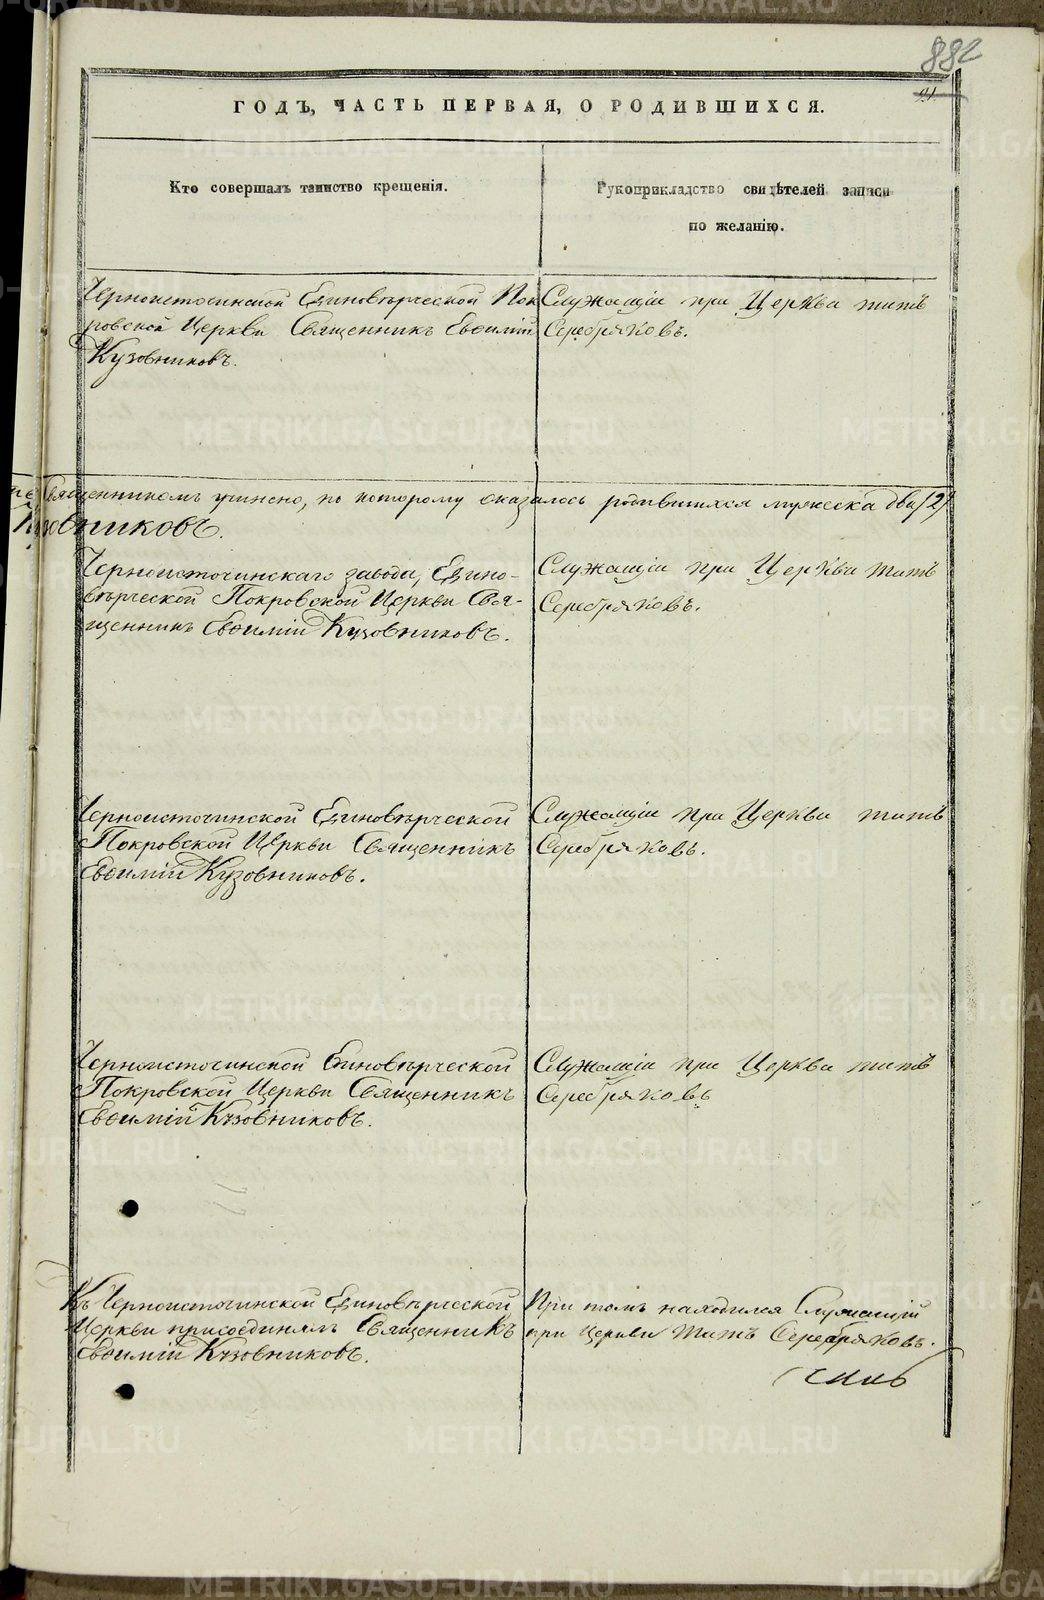 882
91
ГОДЪ, ЧАСТЬ ПЕРВАЯ, О РОДИВШИХСЯ.
Кто совершалъ таинство крещенія.
Рукоприкладство свидѣтелей записи
по желанію.
Черноисточинской Единовѣрческой Пок
ровской Церкви Священникъ Евѳимій
Кузовниковъ.
Служащій при Церкви Титъ
Серебряковъ.
Священникомъ учинено, по которому оказалось родившихся мужеска два (2)
Кузовниковъ.
Черноисточинскаго завода, Едино-
вѣрческой Покровской Церкви Свя-
щенникъ Евѳимій Кузовниковъ.
Служащій при Церкви Титъ
Серебряковъ.
Черноисточинской Единовѣрческой
Покровской Церкви Священникъ
Евѳимій Кузовниковъ.
Служащій при Церкви Титъ
Серебряковъ.
Черноисточинской Единовѣрческой
Покровской Церкви Священникъ
Евѳимій Кузовниковъ.
Служащій при Церкви Титъ
Серебряковъ
Къ Черноисточинской Единовѣрческой
Церкви присоединялъ Священникъ
Евѳимій Кузовниковъ.
При томъ находился Служащій
при Церкви Титъ Серебряковъ.
METRIKI.GASO-URAL.RU